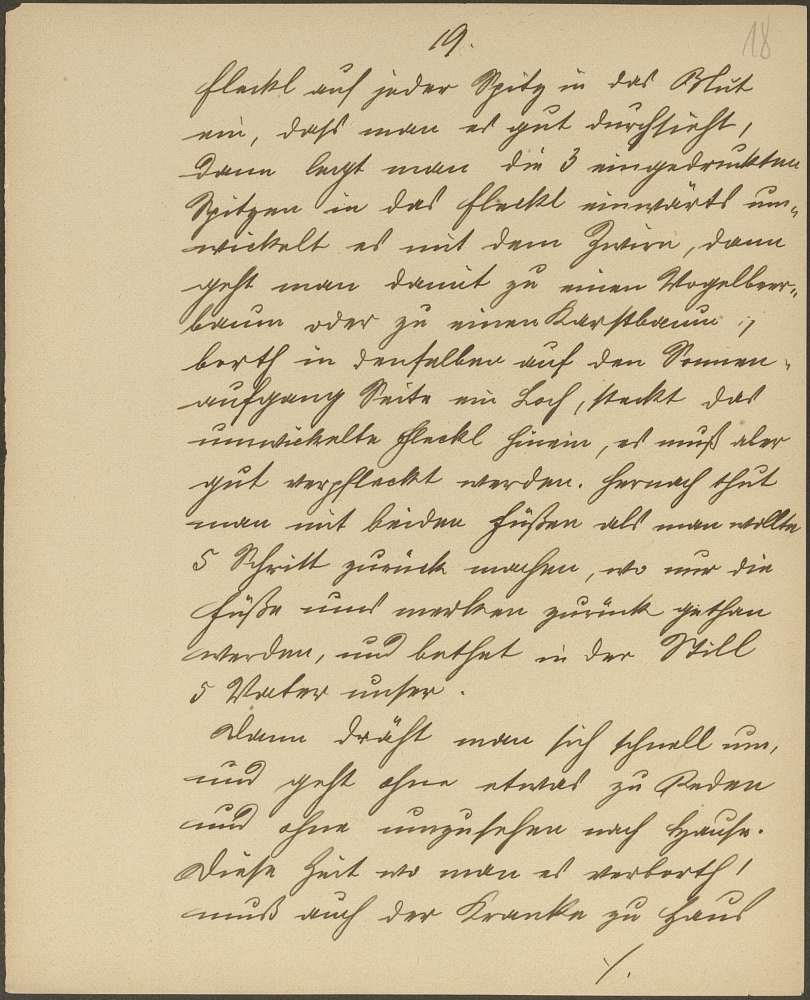 19.
18
Fleckl auf jeder Spitz in das Blut
ein, dass man es gut durchsieht,
dann legt man die 3 eingedruckten
Spitzen in das Fleckl einwärts um-
wickelt es mit dem Zwirn, dann
geht man damit zu einen Vogelbeer-
baum oder zu einen Karstbaum,
borth in denselben auf den Sonnen-
aufgang Seite ein Loch, steckt das
umwickelte Fleckl hinein, es muß aber
gut verpfleckt werden. Hernach thut
man mit beiden Füßen als man wollte
5 Schritt zurück machen, wo nur die
Füße ums merken zurück gethan
werden, und bethet in der Still
5 Vater unser.
Dann dräht man sich schnell um,
und geht ohne etwas zu Reden
und ohne umzusehen nach Hause.
Diese Zeit wo man es verborth,
muß auch der Kranke zu Haus
./.